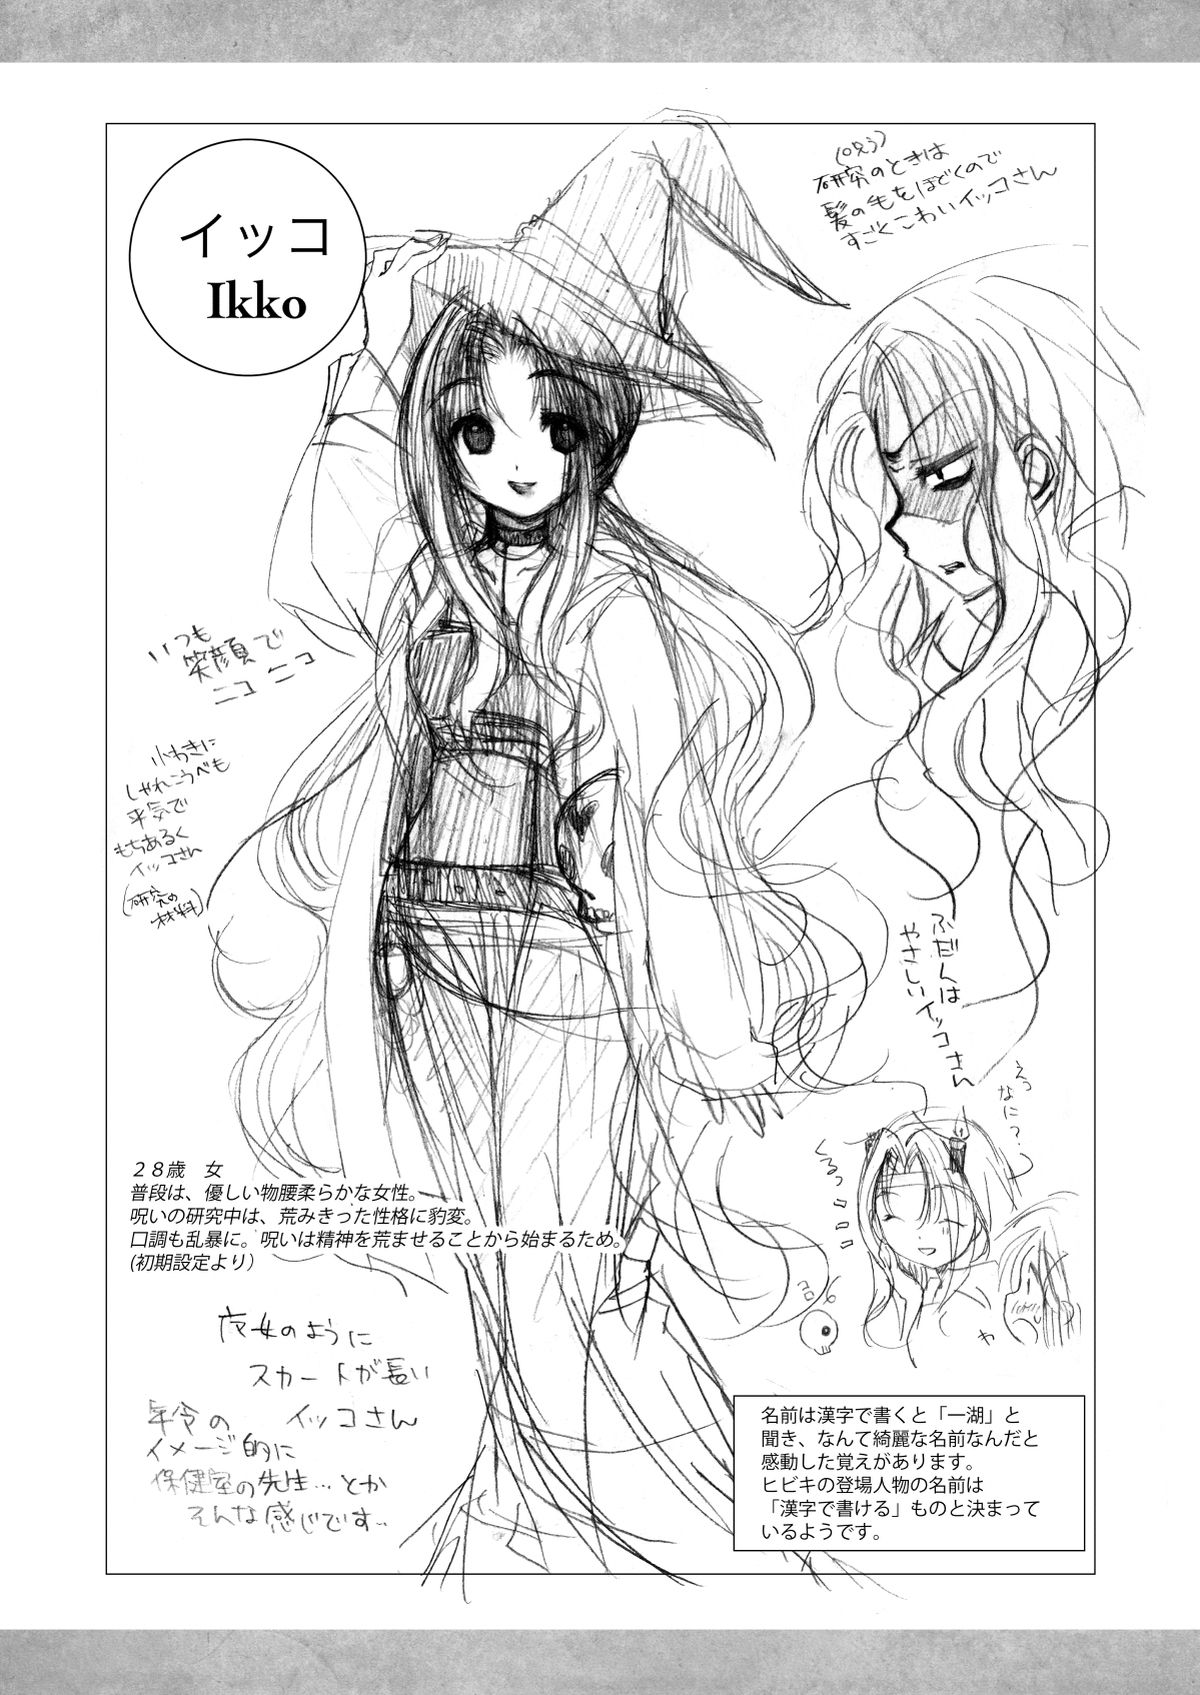 イッコ
Ikko
(呪う)
研究のときは
髪の毛をほどくので
すごくこわいイッコさん
いつも
笑顔で
ニコニコ
小わきに
しゃれこうべも
平気で
もちあるく
イッコさん
(研究の
材料)
ふだんは
やさしいイッコさん
えっ
なに?
くるっ
28歳 女
普段は、優しい物腰柔らかな女性。
呪いの研究中は、荒みきった性格に豹変。
口調も乱暴に。呪いは精神を荒ませることから始まるため。
(初期設定より)
魔女のように
スカートが長い
イッコさん
年令の
イメージ的に
保健室の先生…とか
そんな感じです…
名前は漢字で書くと「一湖」と
聞き、なんて綺麗な名前なんだと
感動した覚えがあります。
ヒビキの登場人物の名前は
「漢字で書ける」ものと決まって
いるようです。